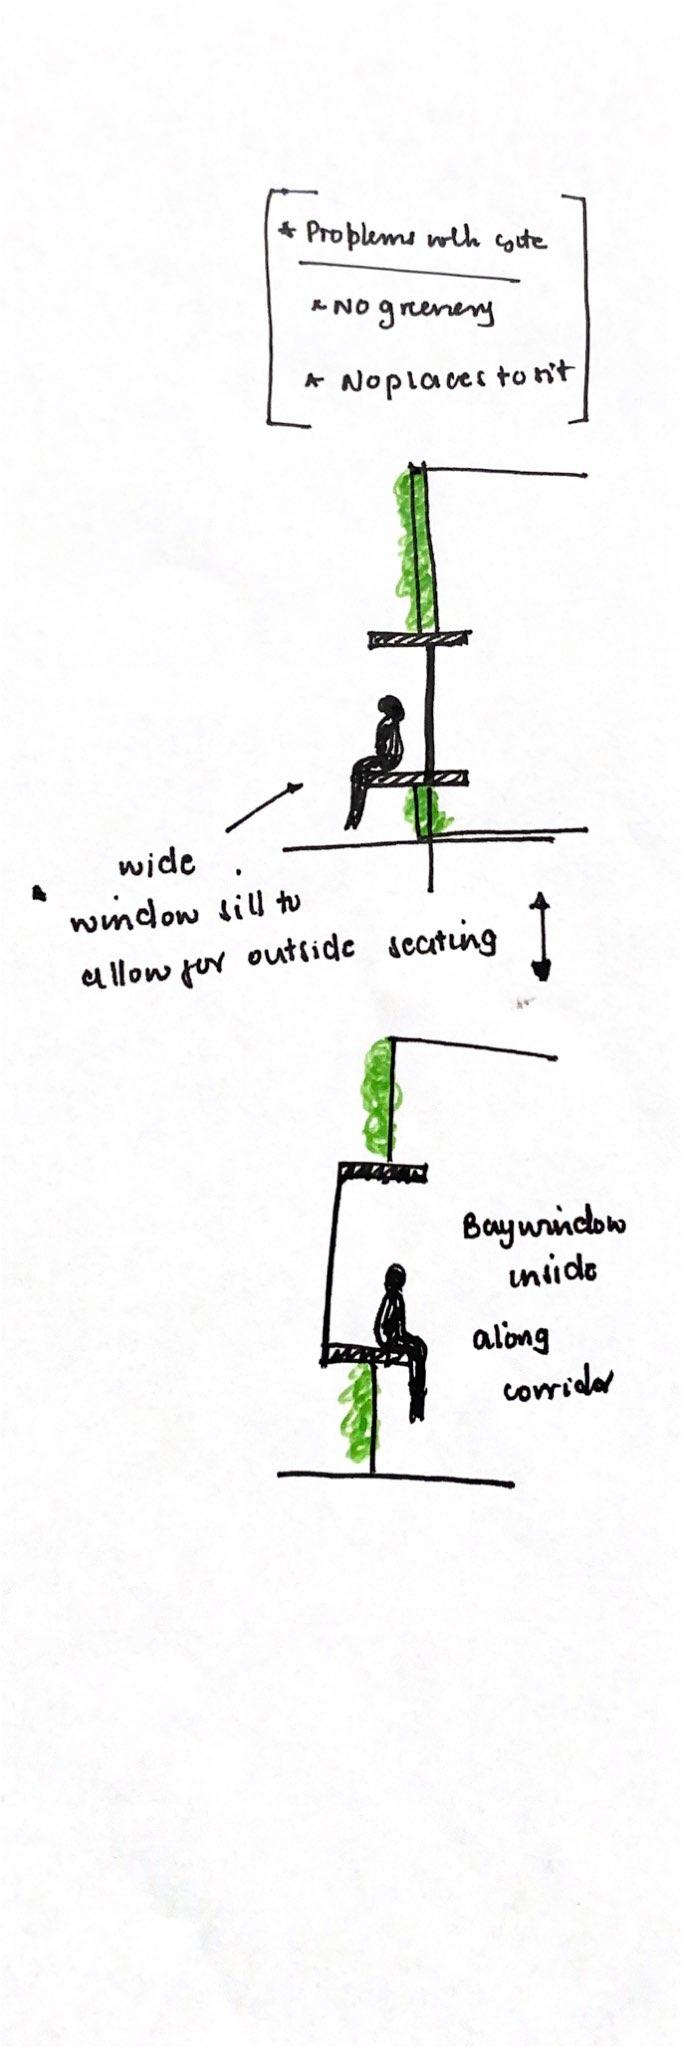 * Problems with site
* No greenery
* No places to sit
wide
* window sill to
allow for outside seating
Baywindow
inside
along
corridor